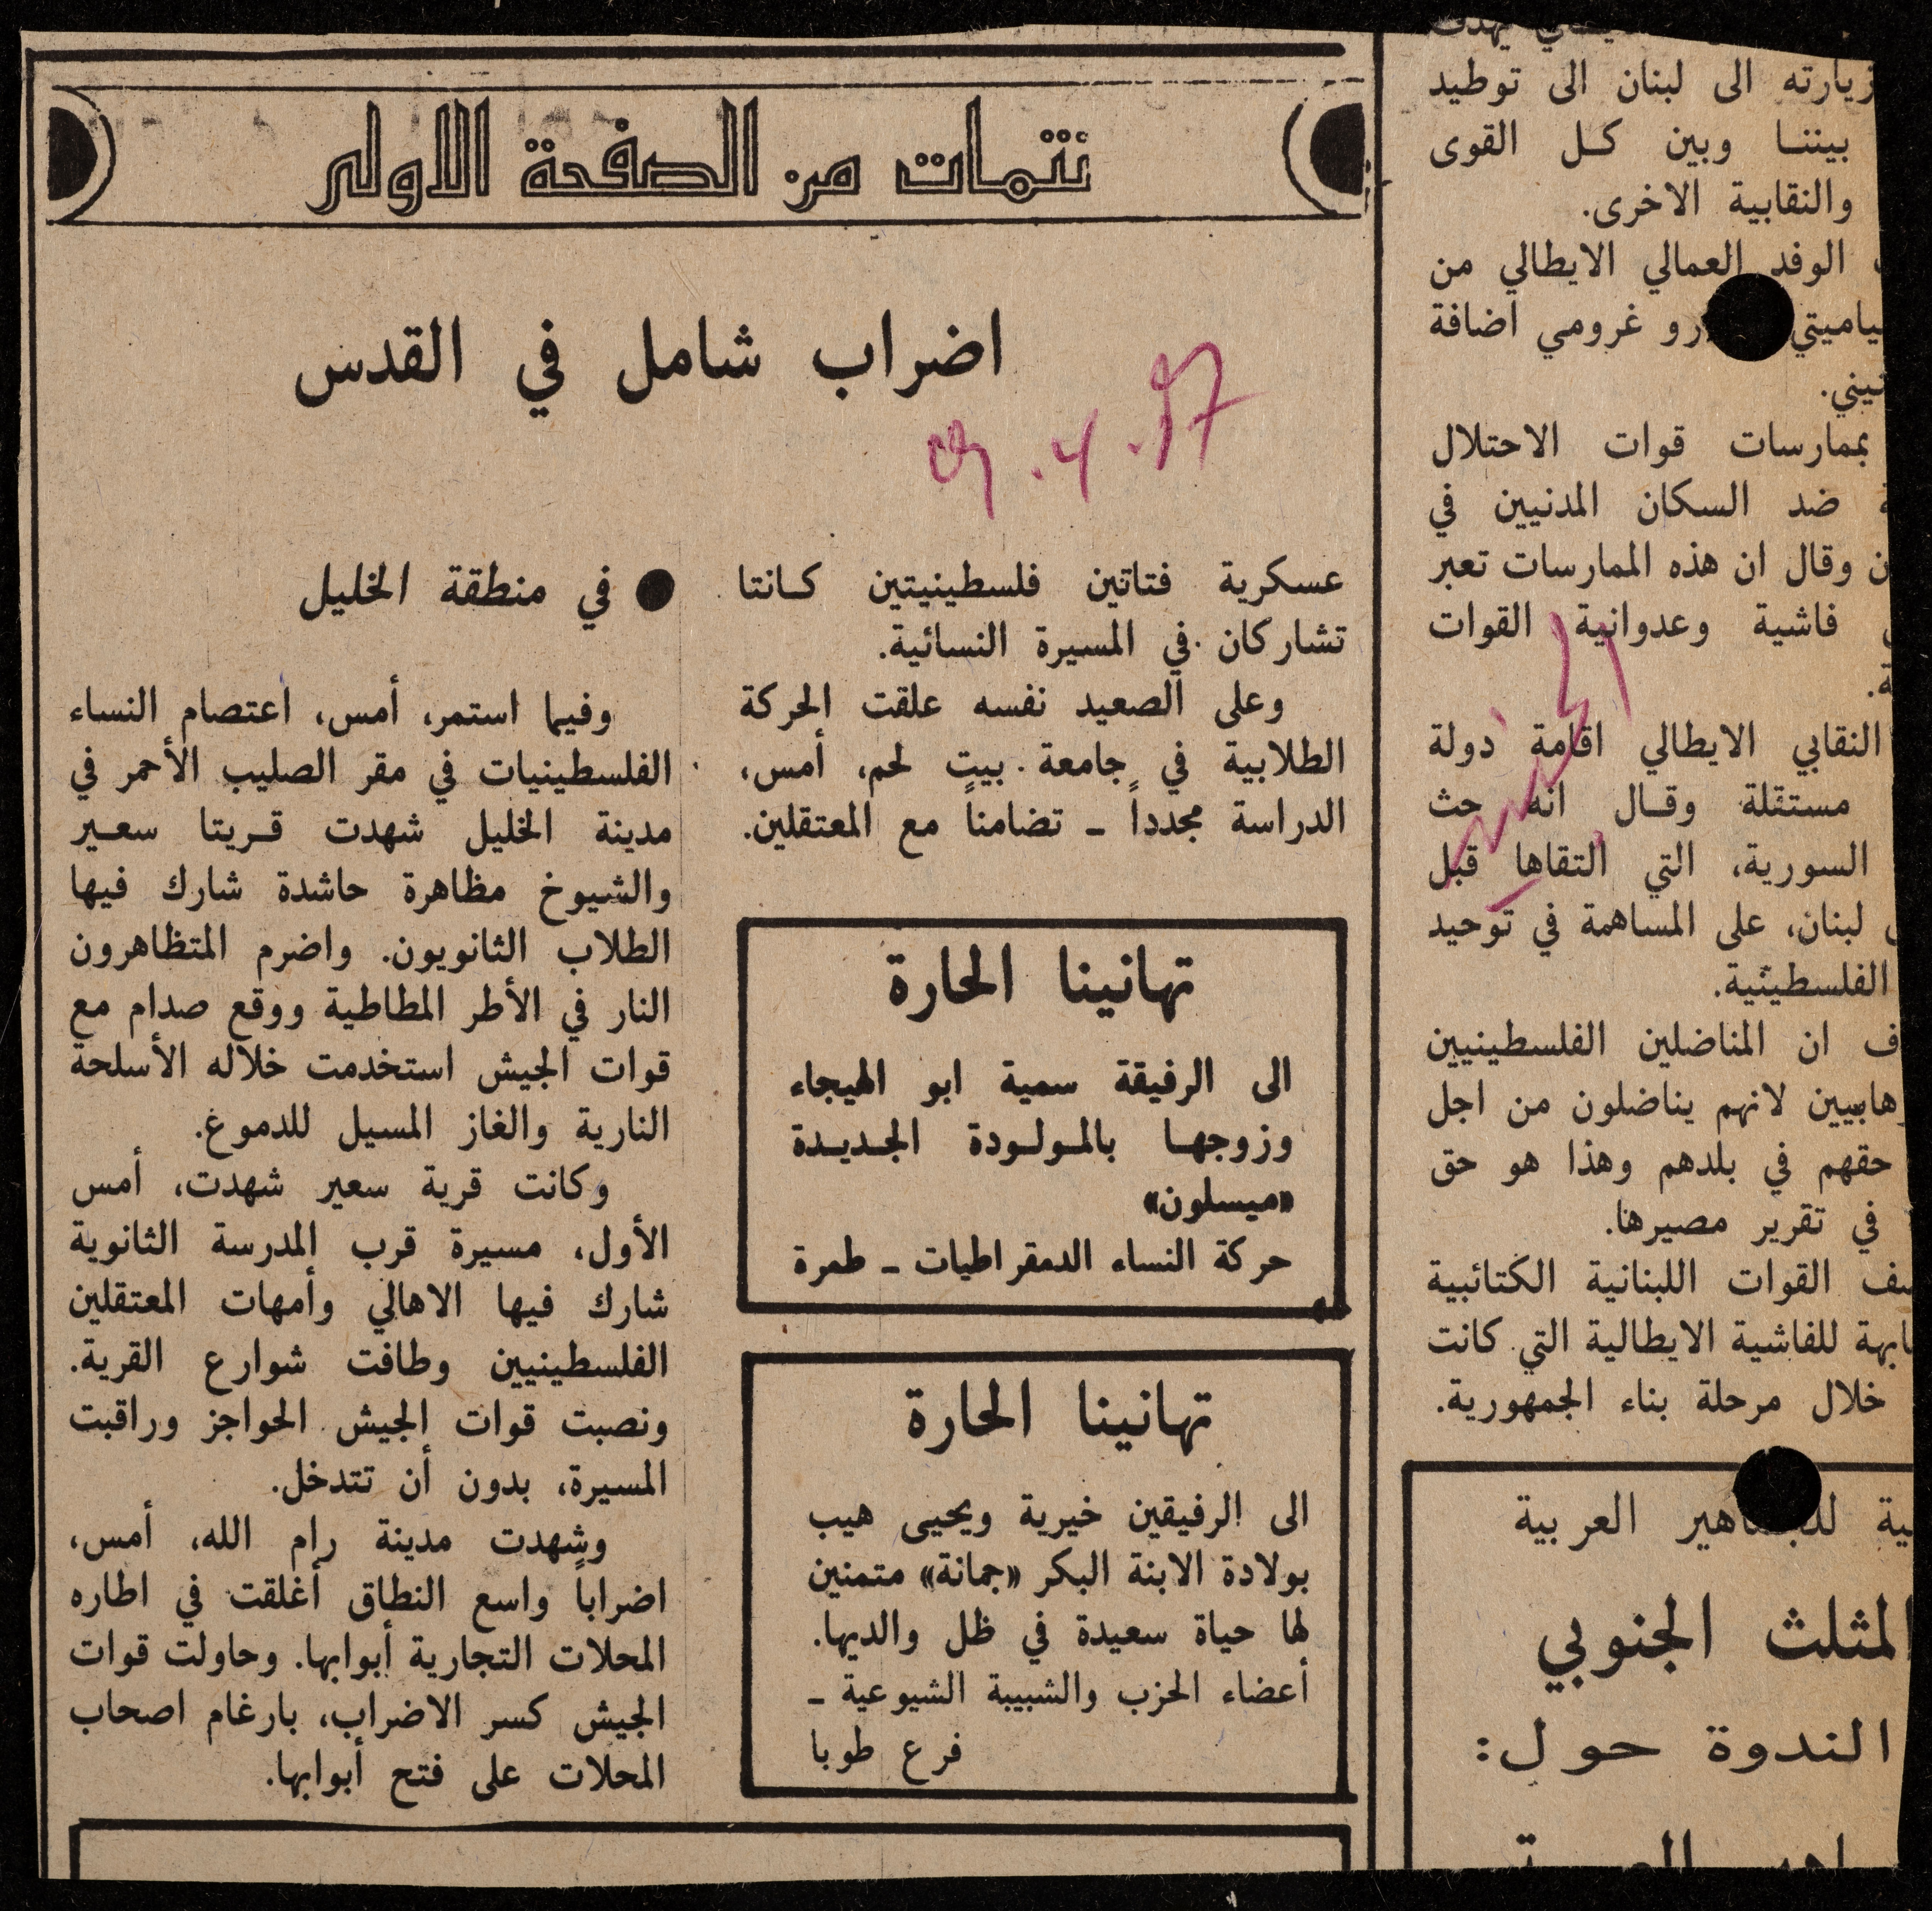 زيارته الى لبنان الى توطيد
بيننا وبين كل القوى
والنقابية الاخرى.
الوفد العمالي الايطالي من
غرومي اضافة
بممارسات قوات الاحتلال
ضد السكان المدنيين في
وقال ان هذه الممارسات تعبر
فاشية وعدوانية القوات
النقابي الايطالي اقامة دولة
مستقلة وقال انه حث
السورية، التي التقاها قبل
لبنان، على المساهمة في توحيد
الفلسطينية.
ان المناضلين الفلسطينيين
لانهم يناضلون من اجل
حقهم في بلدهم وهذا هو حق
في تقرير مصيرها.
القوات اللبنانية الكتائبية
للفاشية الايطالية التي كانت
خلال مرحلة بناء الجمهورية.
العربية
المثلث الجنوبي
الندوة حول:
تتمات من الصفحة الاولى
اضراب شامل في القدس
عسكرية فتاتين فلسطينيتين كانتا
تشاركان في المسيرة النسائية.
وعلى الصعيد نفسه علقت الحركة
الطلابية في جامعة بيت لحم، أمس،
الدراسة مجدداً ـ تضامناً مع المعتقلين.
تهانينا الحارة
الى الرفيقة سمية ابو الهيجاء
وزوجها بالمولودة الجديدة
«ميسلون»
حركة النساء الدمقراطيات ـ طمرة
تهانينا الحارة
الى الرفيقين خيرية ويحيى هيب
بولادة الابنة البكر «جمانة» متمنين
لها حياة سعيدة في ظل والديها.
أعضاء الحزب والشبيبة الشيوعية ـ
فرع طوبا
● في منطقة الخليل
وفيما استمر، أمس، اعتصام النساء
الفلسطينيات في مقر الصليب الأحمر في
مدينة الخليل شهدت قريتا سعير
والشيوخ مظاهرة حاشدة شارك فيها
الطلاب الثانويون. واضرم المتظاهرون
النار في الأطر المطاطية ووقع صدام مع
قوات الجيش استخدمت خلاله الأسلحة
النارية والغاز المسيل للدموع.
وكانت قرية سعير شهدت، أمس
الأول، مسيرة قرب المدرسة الثانوية
شارك فيها الاهالي وأمهات المعتقلين
الفلسطينيين وطافت شوارع القرية.
ونصبت قوات الجيش الحواجز وراقبت
المسيرة، بدون أن تتدخل.
وشهدت مدينة رام الله، أمس،
اضراباً واسع النطاق أغلقت في اطاره
المحلات التجارية أبوابها. وحاولت قوات
الجيش كسر الاضراب، بارغام اصحاب
المحلات على فتح أبوابها.